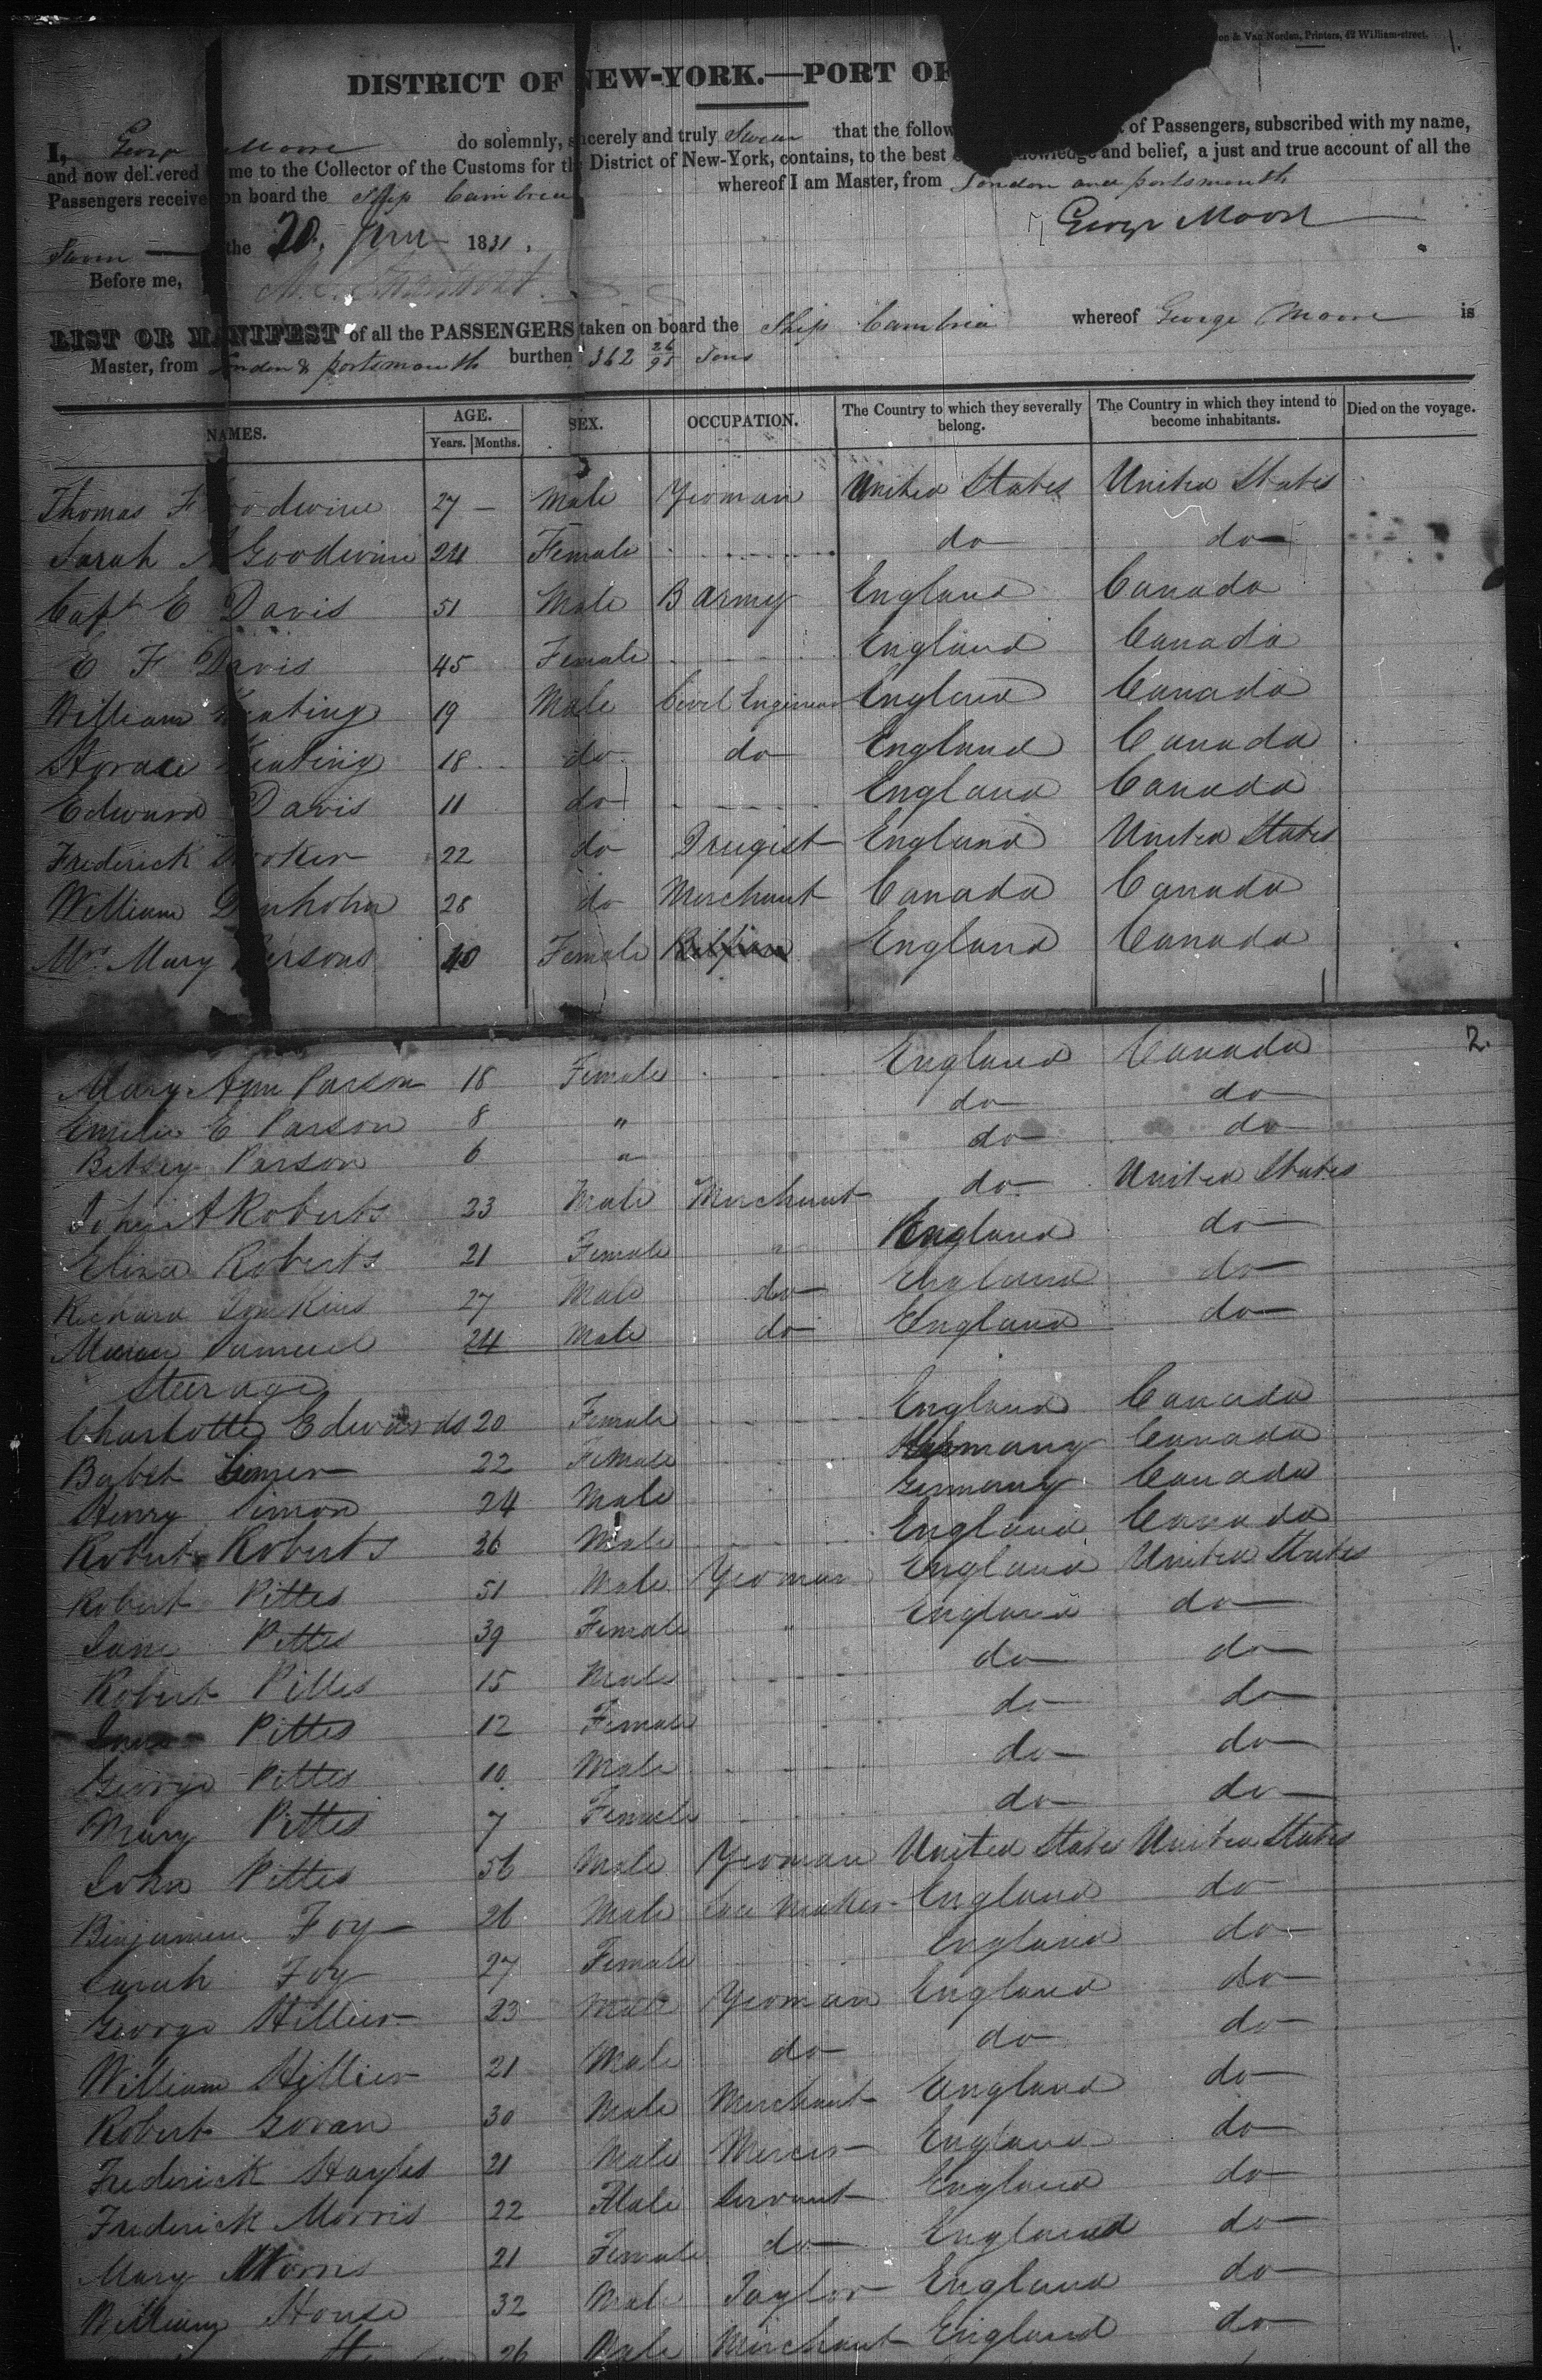 on & Van Norden, Printers, 42 William-street. 1.
DISTRICT OF NEW-YORK.—PORT OF
I, George Moore do solemnly, sincerely and truly Swear that the follow of Passengers, subscribed with my name,
and now delivered me to the Collector of the Customs for the District of New-York, contains, to the best knowledge and belief, a just and true account of all the
Passengers receive on board the Ship Cambria whereof I am Master, from London and portsmouth
George Moore
Sworn the 20. 1831.
Before me,
LIST OR MANIFEST of all the PASSENGERS taken on board the Ship Cambria whereof George Moore is
Master, from London & portsmouth burthen 362 26/95 Tons
NAMES. AGE. Years. Months. SEX. OCCUPATION. The Country to which they severally belong. The Country in which they intend to become inhabitants. Died on the voyage.
Thomas F oodwine 27 — Male Yeoman United States United States
Sarah A Goodwine 24 Female do do
Capt E Davis 51 Male B army England Canada
E F Davis 45 Female England Canada
William Keating 19 Male Civel Engineer England Canada
Horace Keating 18 do do England Canada
Edward Davis 11 do England Canada
Frederick 22 do Drugist England United States
William 28 do Merchant Canada Canada
Mrs Mary ersons 40 Female England Canada
2.
Mary Ann Parson 18 Female England Canada
Emelie E Parson 8 " do do
Betsey Parson 6 " do do
John A Roberts 23 Male Merchant do United States
Eliza Roberts 21 Female " England do
Richard Tomkins 27 Male do England do
Samuel 24 Male do England do
Steerage
Charlotte Edwards 20 Female England Canada
Babet 22 Female Germany Canada
Henry Simon 24 Male Germany Canada
Robert Roberts 26 Male England Canada
Robert Pittes 51 Male Yeoman England United States
Jane Pittes 39 Female " England do
Robert Pittes 15 Male do do
Jane Pittes 12 Female do do
George Pittes 10 Male do do
Mary Pittes 7 Female do do
John Pittes 56 Male Yeoman United States United States
Binjamin Foy 26 Male Lace Maker England do
Sarah Foy 27 Female England do
George Hillier 23 Male Yeoman England do
William Hillier 21 Male do do do
Robert Goran 30 Male Merchant England do
Frederick Hayles 21 Male Mercer England do
Frederick Morris 22 Male Servant England do
Mary Morris 21 Female do England do
William House 32 Male Taylor England do
26 Male Merchant England do